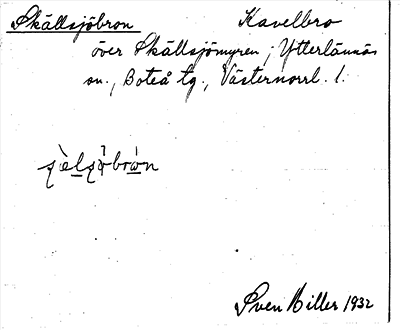 Skällsjöbron Kavelbro
över Skällsjömyren; Ytterlännäs
sn., Boteå tg., Västernorrl. l.
Sven Hiller 1932